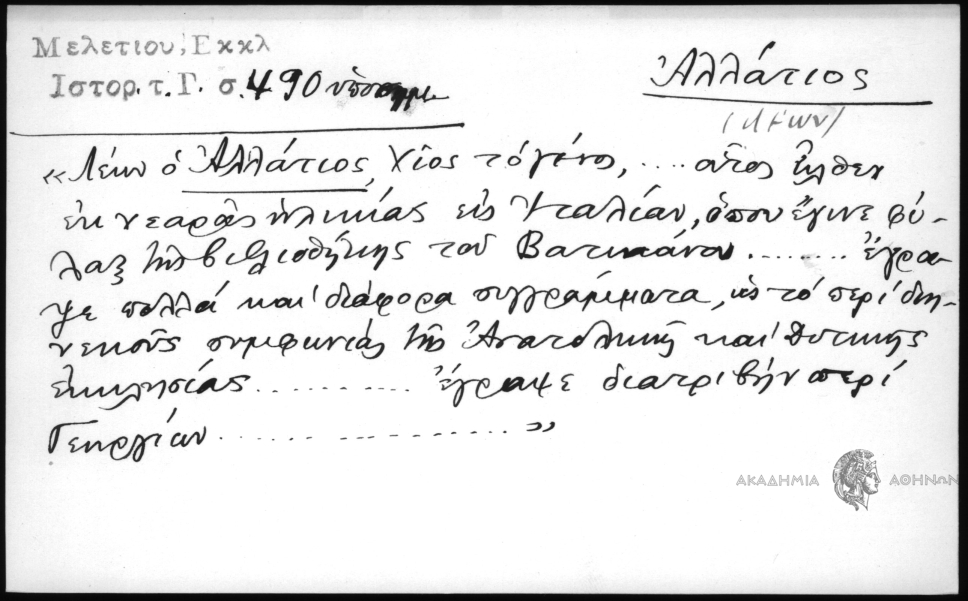 Μελετίου, Εκκλ
Ιστορ. τ. Γ. σ. 490 ὑποσημ.
Ἀλλάτιος
(Λέων)
«Λέων ὁ Ἀλλάτιος, Χῖος τὸ γένος, .... οὗτος ἦλθεν
ἐκ νεαρᾶς ἡλικίας εἰς Ἰταλίαν, ὅπου ἔγινε φύ-
λαξ τῆς βιβλιοθήκης τοῦ Βατικάνου ........ ἔγρα-
ψε πολλὰ καὶ διάφορα συγγράμματα, ὡς τὸ περὶ διη-
νεκοῦς συμφωνίας τῆς Ἀνατολικῆς καὶ Δυτικῆς
ἐκκλησίας .......... ἔγραψε διατριβὴν περὶ
Γεωργίων .................. »
ΑΚΑΔΗΜΙΑ ΑΘΗΝΩΝ